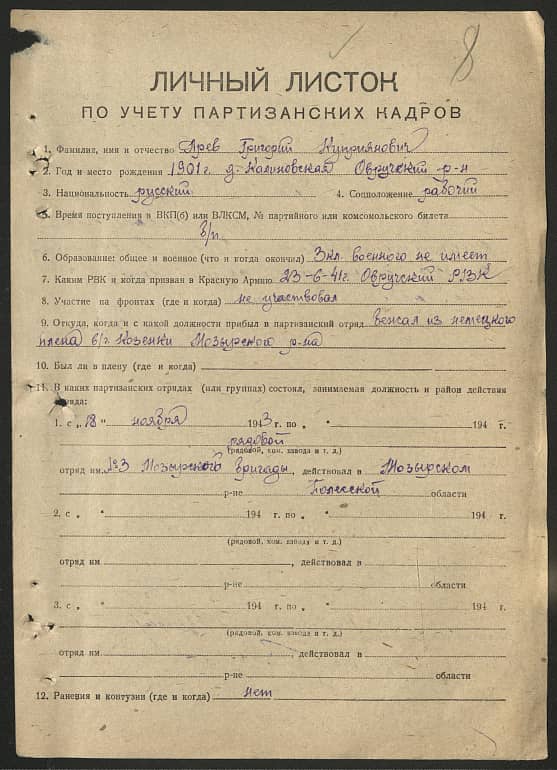 8
ЛИЧНЫЙ ЛИСТОК
ПО УЧЕТУ ПАРТИЗАНСКИХ КАДРОВ
1. Фамилия, имя и отчество Древ Григорий Куприянович
2. Год и место рождения 1901 г. д. Калиновская Овручский р-н
3. Национальность русский 4. Соцположение рабочий
5. Время поступления в ВКП(б) или ВЛКСМ, № партийного или комсомольского билета
б/п
6. Образование: общее и военное (что и когда окончил) 3 кл. военного не имеет
7. Каким РВК и когда призван в Красную Армию 23-6-41г. Овручский РВК
8. Участие на фронтах (где и когда) не участвовал
9. Откуда, когда и с какой должности прибыл в партизанский отряд бежал из немецкого
плена в/г Козенки Мозырского р-на
10. Был ли в плену (где и когда)
11. В каких партизанских отрядах (или группах) состоял, занимаемая должность и район действия
отряда:
1. с „18 " ноября 1943 г. по „ " 194 г.
рядовой
(рядовой, ком. взвода и т. д.)
отряд им. №3 Мозырской бригады, действовал в Мозырском
р-не Полесской области
2. с „ " 194 г. по „ " 194 г.
(рядовой, ком. взвода и т. д.)
отряд им. , действовал в
р-не области
3. с „ " 194 г. по „ " 194 г.
(рядовой, ком. взвода и т. д.)
отряд им. , действовал в
р-не области
12. Ранения и контузии (где и когда) нет